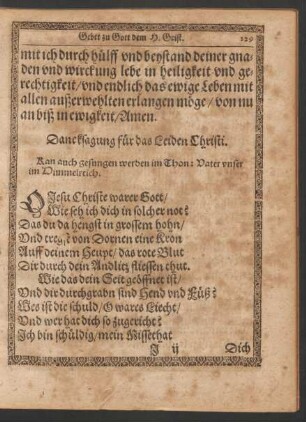 Gebet zu Gott dem H. Geist. 129
mit ich durch hülff vnd beystand deiner gna⸗
den vnd wirckung lebe in heiligkeit vnd ge⸗
rechtigkeit/ vnd endlich das ewige Leben mit
allen außerwehlten erlangen möge/ von nu
an biß in ewigkeit/ Amen.
Dancksagung für das Leiden Christi.
Kan auch gesungen werden im Thon: Vater vnser
im Himmelreich.
O Jesu Christe warer Gott/
Wie seh ich dich in solcher not?
Das du da hengst in grossem hohn/
Vnd tregst von Dornen eine Kron
Auff deinem Heupt/ das rote Blut
Dir durch dein Andlitz fliessen thut.
Wie das dein Seit geöffnet ist/
Vnd dir durchgrabn sind Hend vnd Füß?
Wes ist die schuld/ O wares Liecht/
Vnd wer hat dich so zugericht?
Ich bin schüldig/ mein Missethat
J ij Dich